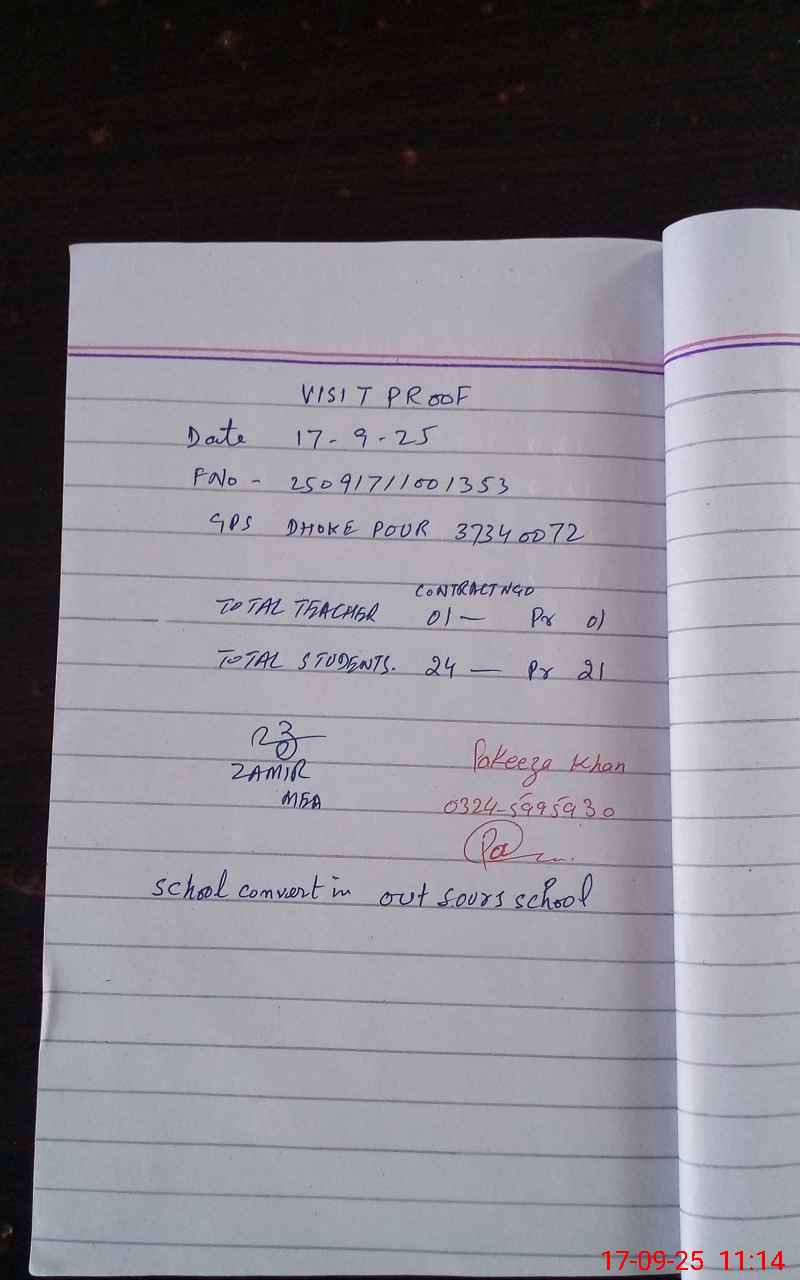 VISIT PROOF
Date 17-9-25
FNo - 25091711001353
GPS DHOKE POUR 37340072
CONTRACTNGO
TOTAL TEACHER 01 — Pr 01
TOTAL STUDENTS. 24 — Pr 21
ZAMIR
MEA
Pakeeza Khan
0324-5995930
school convert in out sours school
17-09-25 11:14